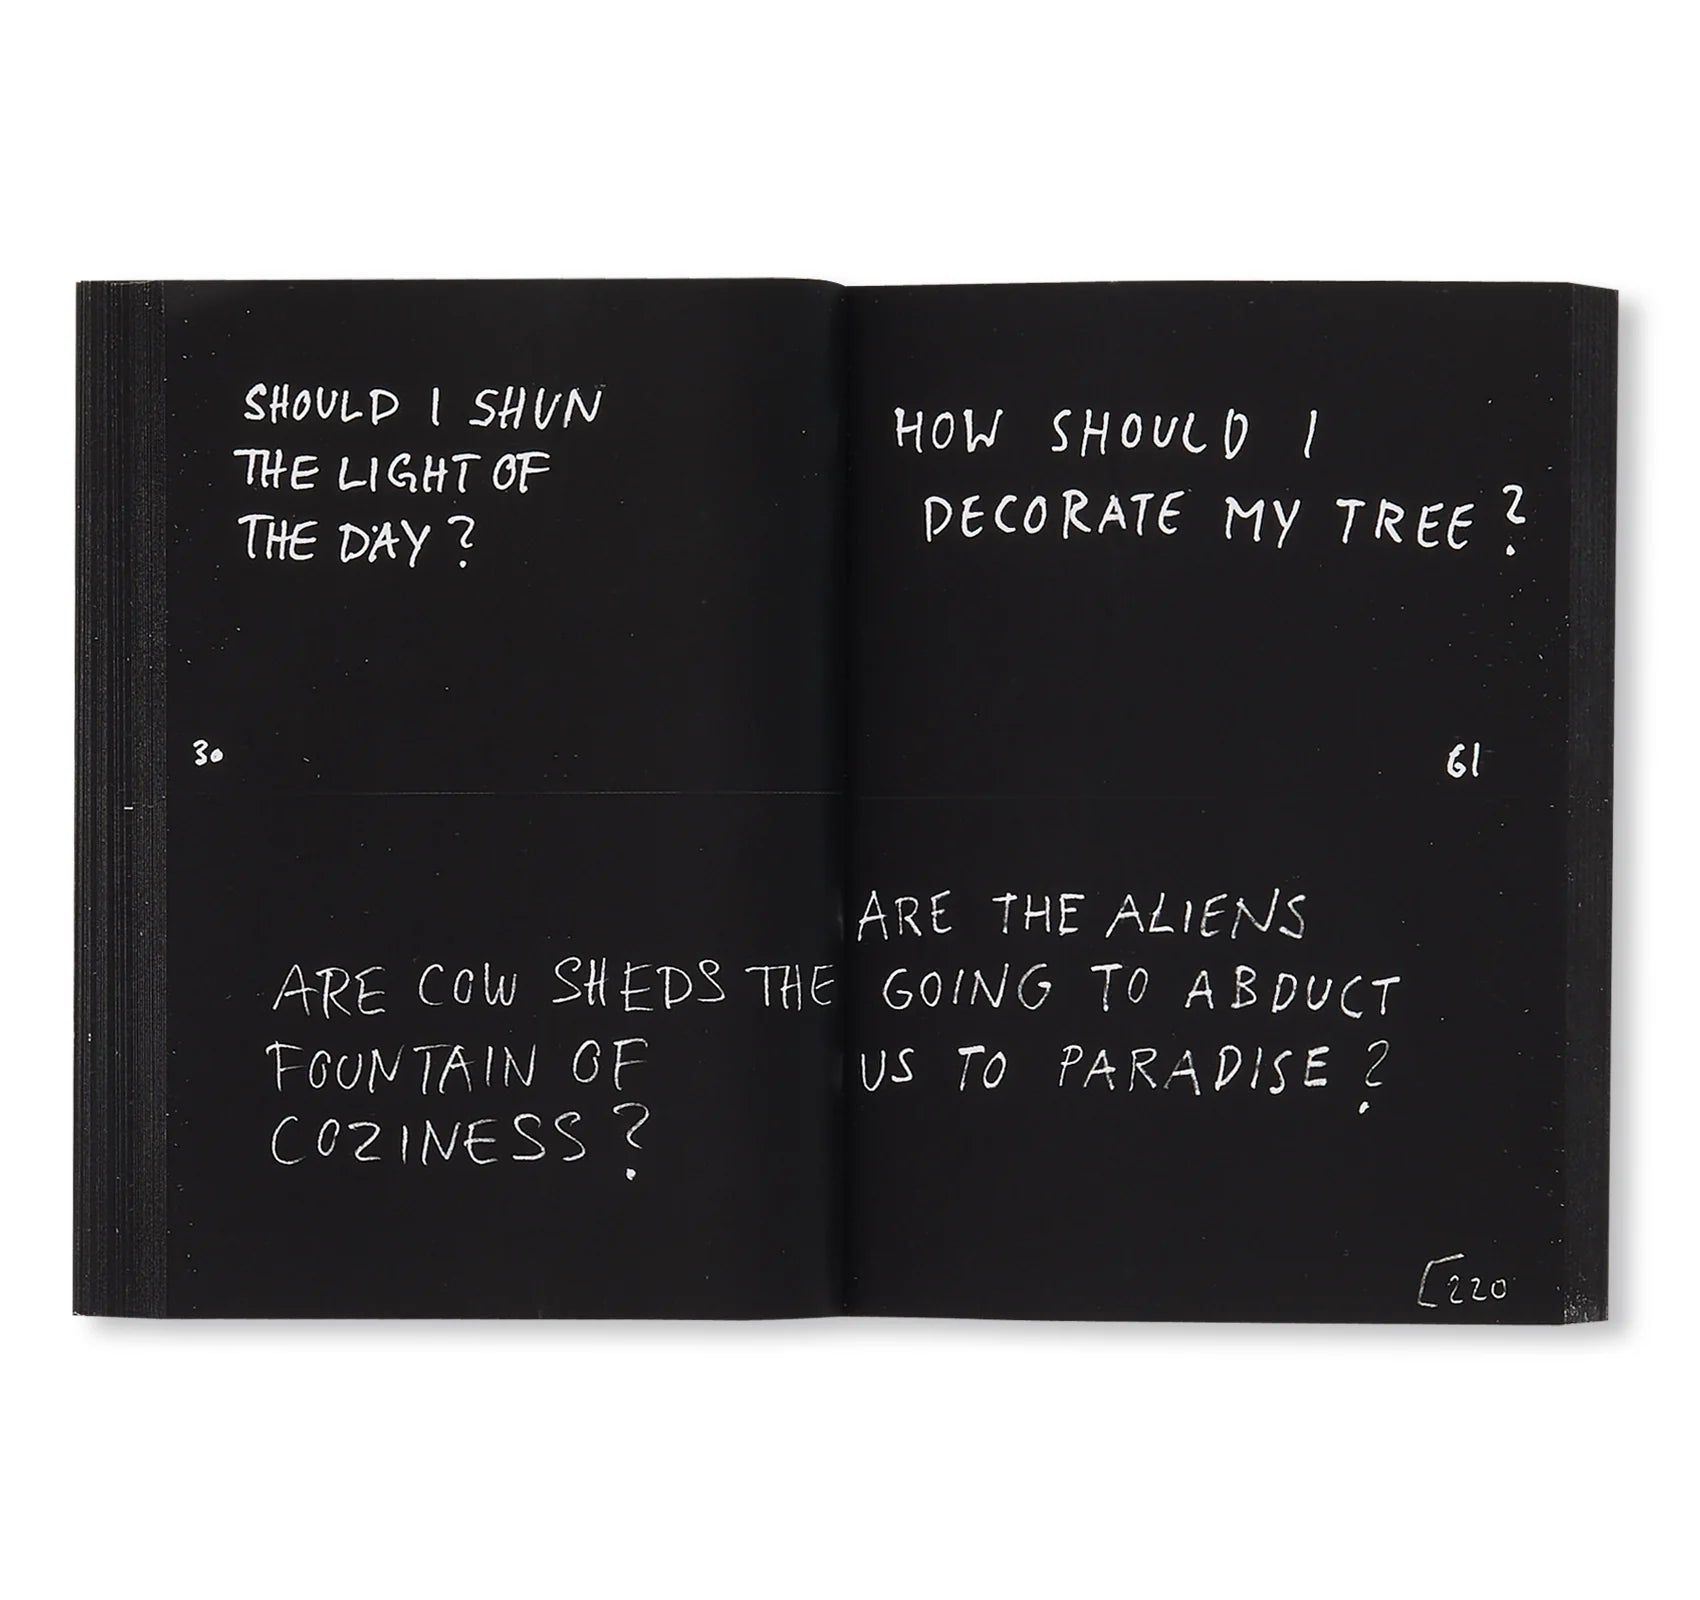 SHOULD I SHUN
THE LIGHT OF
THE DAY?
30
HOW SHOULD I
DECORATE MY TREE?
61
ARE COW SHEDS THE
FOUNTAIN OF
COZINESS?
ARE THE ALIENS
GOING TO ABDUCT
US TO PARADISE?
[220